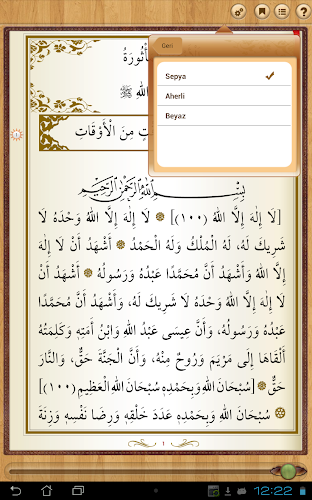 Geri
Sepya
Aherli
Beyaz
أْثُورَةُ
اللهِ ﷺ
تٍ مِنَ الْأَوْقَاتِ
بِسْمِ اللهِ الرَّحْمٰنِ الرَّحِيمِ
[لَا إِلٰهَ إِلَّا اللهُ (١٠٠)] ۞ لَا إِلٰهَ إِلَّا اللهُ وَحْدَهُ لَا
شَرِيكَ لَهُ، لَهُ الْمُلْكُ وَلَهُ الْحَمْدُ ۞ أَشْهَدُ أَنْ لَا إِلٰهَ
إِلَّا اللهُ وَأَشْهَدُ أَنَّ مُحَمَّدًا عَبْدُهُ وَرَسُولُهُ ۞ أَشْهَدُ أَنْ
لَا إِلٰهَ إِلَّا اللهُ وَحْدَهُ لَا شَرِيكَ لَهُ، وَأَشْهَدُ أَنَّ مُحَمَّدًا
عَبْدُهُ وَرَسُولُهُ، وَأَنَّ عِيسَى عَبْدُ اللهِ وَابْنُ أَمَتِهِ وَكَلِمَتُهُ
أَلْقَاهَا إِلَى مَرْيَمَ وَرُوحٌ مِنْهُ، وَأَنَّ الْجَنَّةَ حَقٌّ، وَالنَّارَ
حَقٌّ ۞ [سُبْحَانَ اللهِ وَبِحَمْدِهِ سُبْحَانَ اللهِ الْعَظِيمِ (١٠٠)]
۞ سُبْحَانَ اللهِ وَبِحَمْدِهِ عَدَدَ خَلْقِهِ وَرِضَا نَفْسِهِ وَزِنَةَ
١
12:22